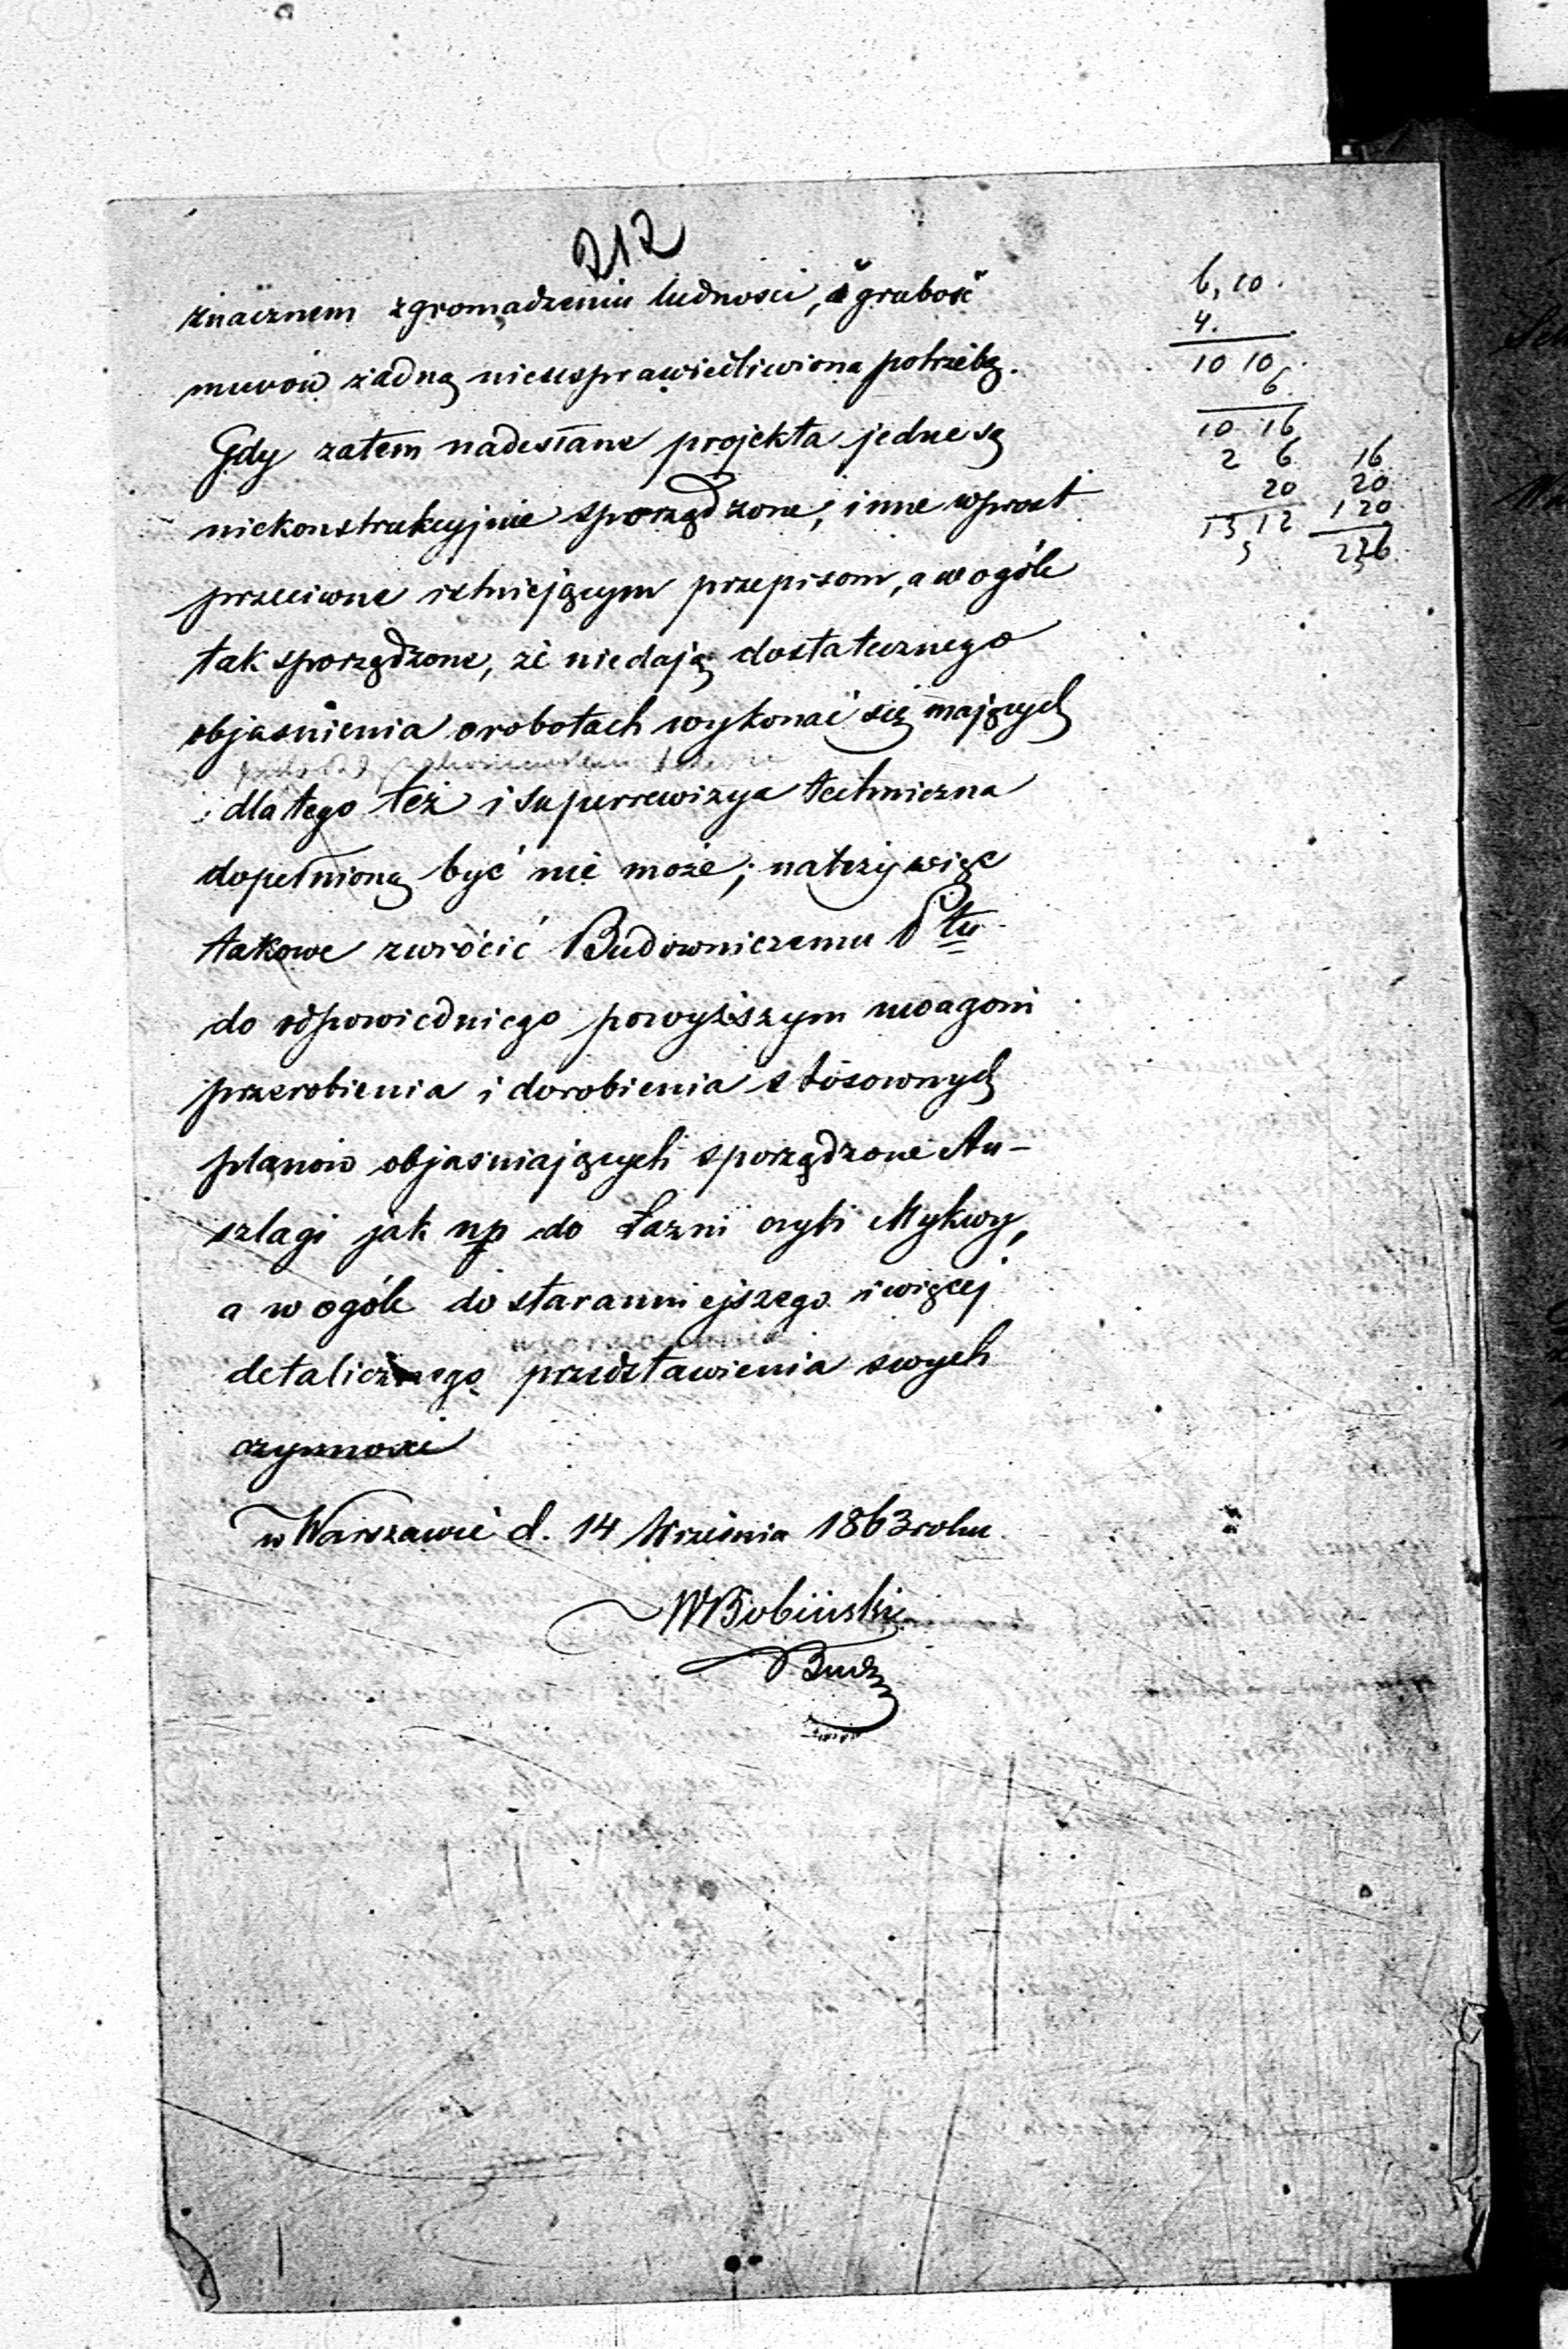 212
znacznem zgromadzeniu ludności, a grubość
murów żadną nieusprawiedliwiona potrzebą.
Gdy zatem nadesłane projekta jedne są
niekonstrukcyjnie sporządzone, inne wprost
przeciwne istniejącym przepisom, a w ogóle
tak sporządzone, że niedają dostatecznego
objaśnienia o robotach wykonać się mających
i dla tego też i superrewizya techniczna
dopełnioną być nie może; należy więc
takowe zwrócić Budowniczemu Ptu
do odpowiedniego powyższym uwagom
przerobienia i dorobienia stósownych
planów objaśniających sporządzone An-
szlagi jak np do Łazni czyli Mykwy,
a w ogóle do staranniejszego i więcej
detalicznego przedstawienia swych
czynności
w Warszawie d. 14 Września 1863 roku
WBobiński
Bud
6, 10.
4.
10 10
6
10 16
2 6 16
20 20
13 12 120